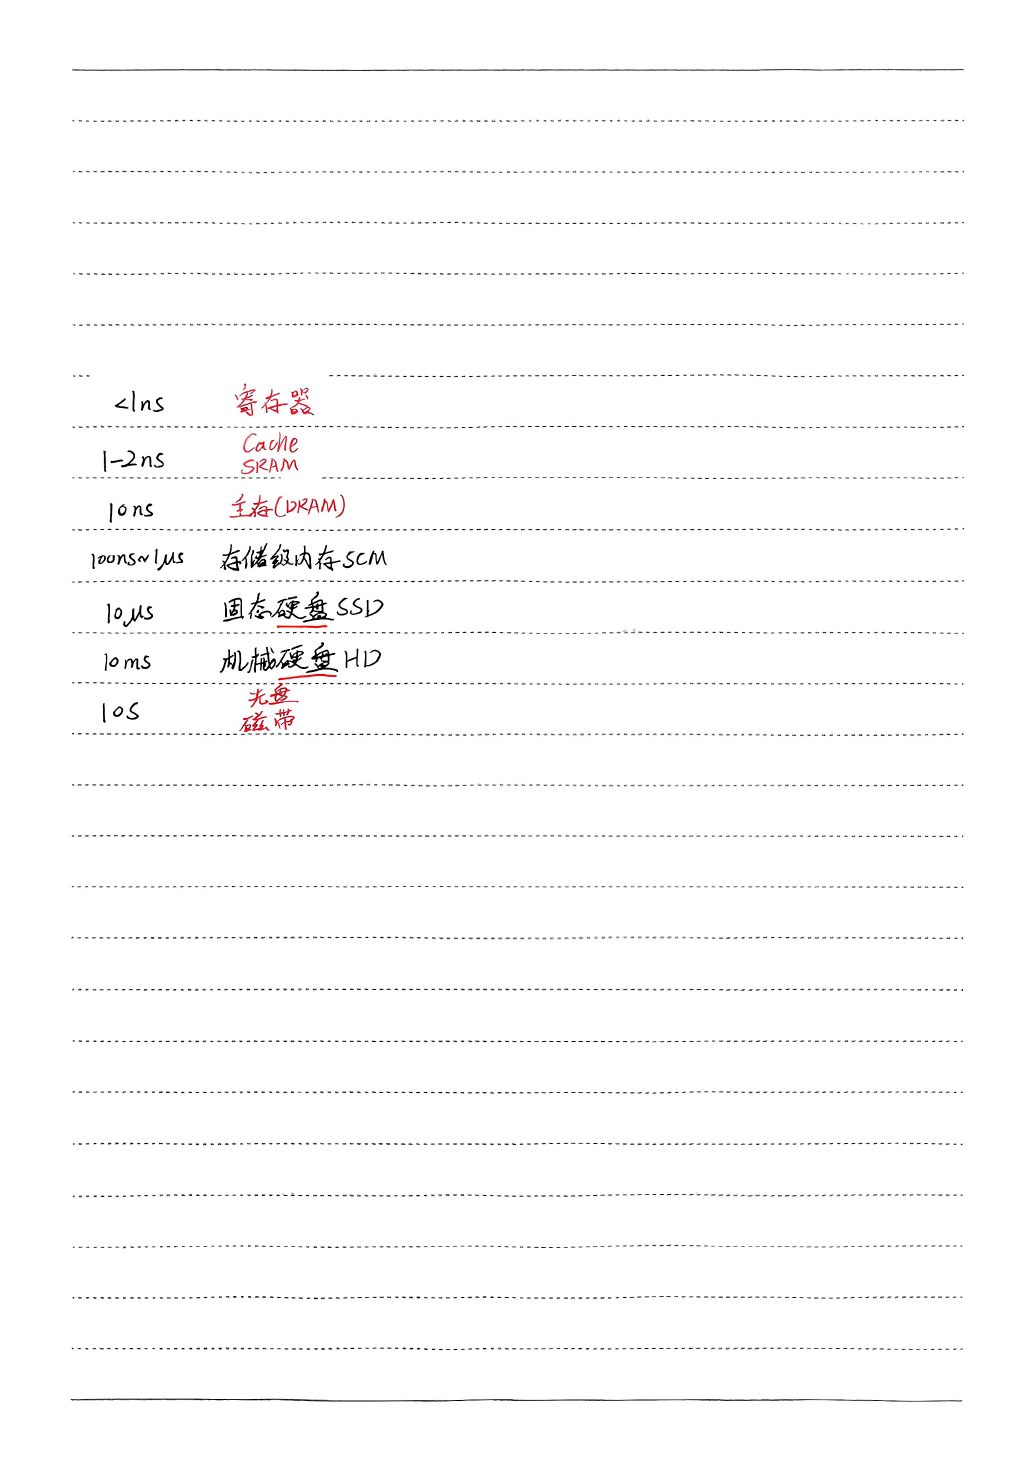 <1ns 寄存器
1-2ns Cache
SRAM
10ns 主存(DRAM)
100ns~1μs 存储级内存SCM
10μs 固态硬盘SSD
10ms 机械硬盘HD
10S 光盘
磁带